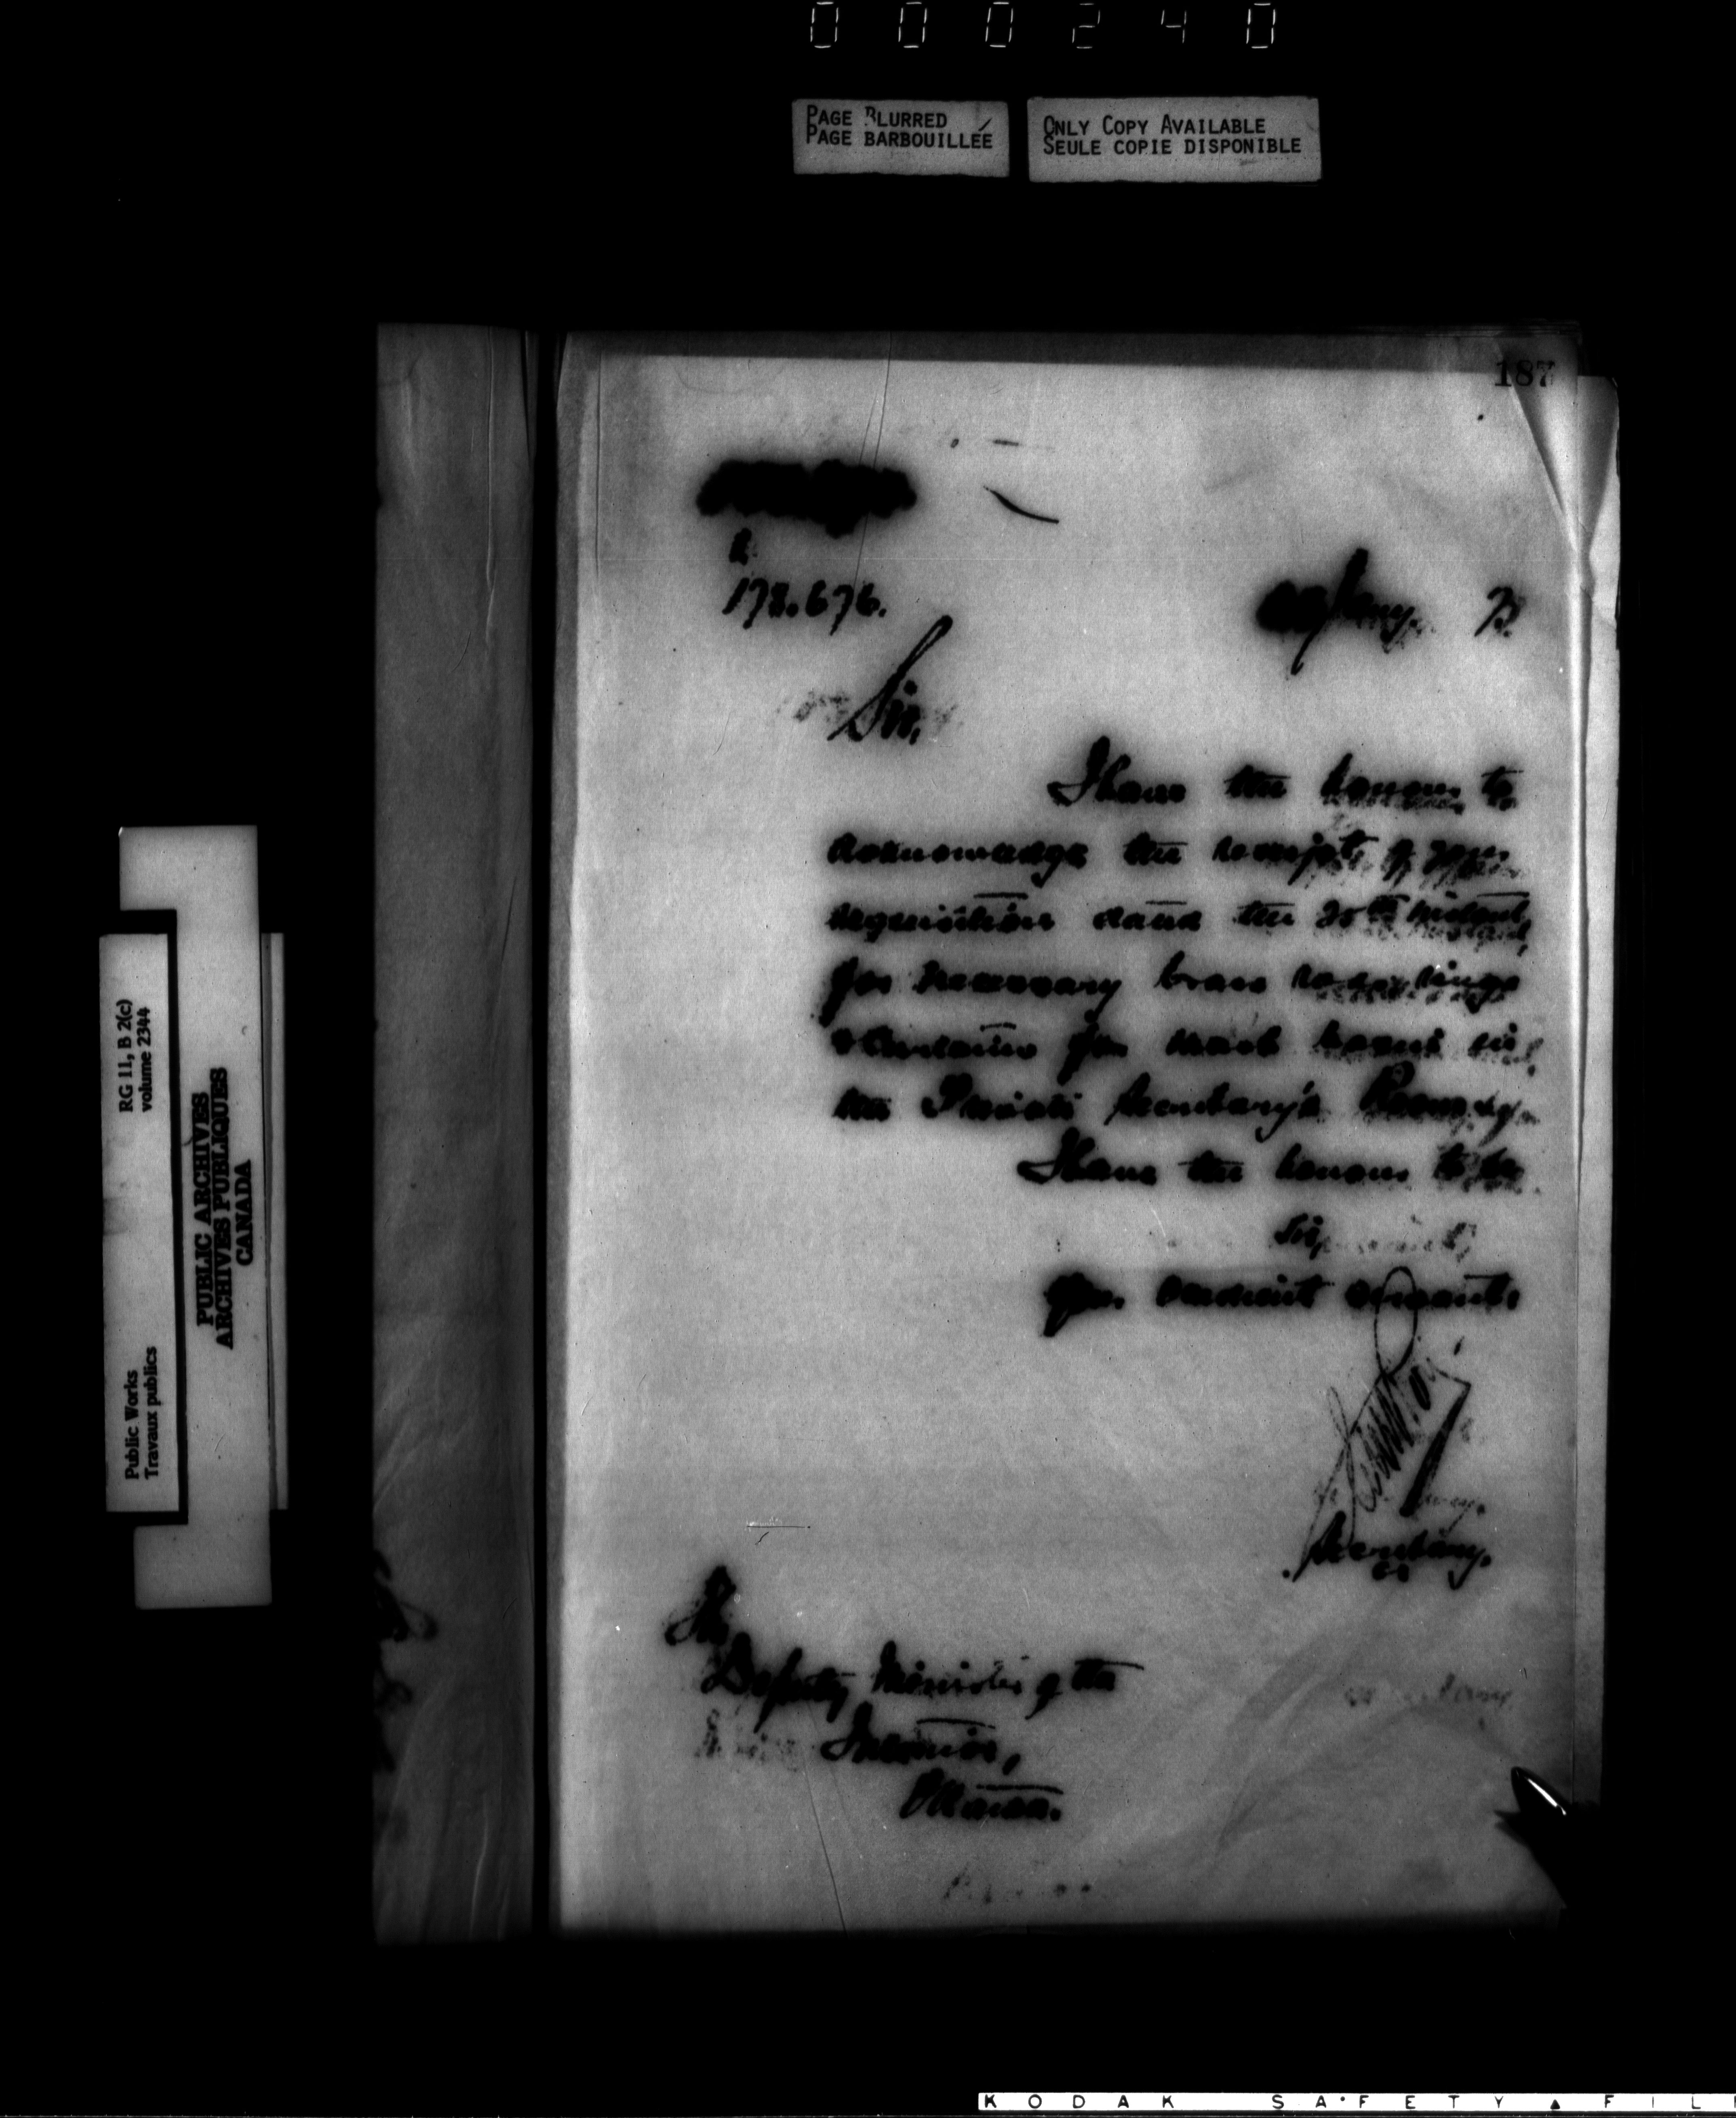 000240
PAGE BLURRED
PAGE BARBOUILLÉE
ONLY COPY AVAILABLE
SEULE COPIE DISPONIBLE
187
178.676.
Jany.
Sir,
I have the honour to
acknowledge the receipt of your
requisition dated the 20th instant,
for necessary brass rings
& Curtains for
the Private Secretary's Room
I have the honour to be
Sir,
Your obedient servant,
Secretary.
The
Deputy Minister of the
Interior,
Ottawa.
RG 11, B 2(c)
volume 2344
Public Works
Travaux publics
PUBLIC ARCHIVES
ARCHIVES PUBLIQUES
CANADA
KODAK SAFETY FIL